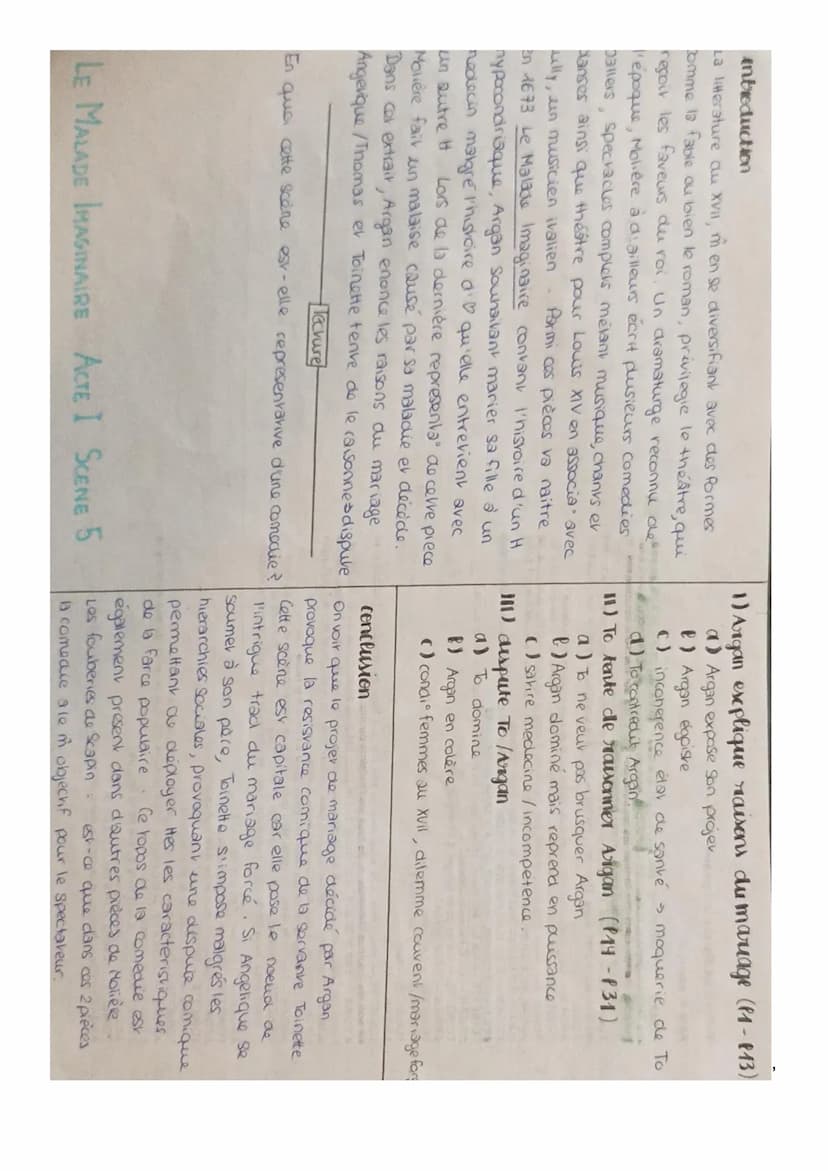 LE MALADE IMAGINAIRE ACTE I SCENE 5
introduction
La litterature au XVII, m̂ en se diversifiant avec des formes
comme la fable ou bien le roman, privilegie le théâtre, qui
reçoit les faveurs du roi. Un dramaturge reconnu de
l'époque, Molière à d'ailleurs écrit plusieurs comedies
ballets, spectacles complets mêlant musique, chants et
danses ainsi que théâtre pour Louis XIV en associa° avec
Lully, un musicien italien. Parmi ces pièces va naitre
en 1673 Le Malade Imaginaire contant l'histoire d'un H
hypocondriaque, Argan souhaitant marier sa fille à un
medecin malgré l'histoire d'♡ qu'elle entretient avec
un autre H Lors de la dernière representa° de cette piece
Molière fait un malaise causé par sa maladie et décède.
Dans cet extrait, Argan enonce les raisons du mariage
Angelique/Thomas et Toinette tente de le raisonne → dispute
lecture
En quoi cette scène est-elle representative d'une comedie?
I) Argan explique raisons du mariage (l1-l13)
a) Argan expose son projet
b) Argan égoiste
c) incoherence état de santé → moquerie de To
d) To contredit Argan
II) To tente de raisonner Argan (l14-l31)
a) To ne veut pas brusquer Argan
b) Argan dominé mais reprend en puissance
c) satire medecine / incompétence.
III) dispute To/Argan
a) To domine
b) Argan en colère
c) condi° femmes au XVII, dilemme couvent/mariage for
conclusion
On voit que le projet de mariage décidé par Argan
provoque la resistance comique de la servante Toinette
Cette scène est capitale car elle pose le noeud de
l'intrigue trad du mariage forcé. Si Angelique se
soumet à son père, Toinette s'impose malgrés les
hierarchies sociales, provoquant une dispute comique
permettant de déployer ttes les caracteristiques
de la farce populaire. Ce topos de la comedie est
également present dans d'autres pièces de Molière
Les fouberies de Scapin : est-ce que dans ces 2 pièces
la comedie a le m̂ objectif pour le spectateur.